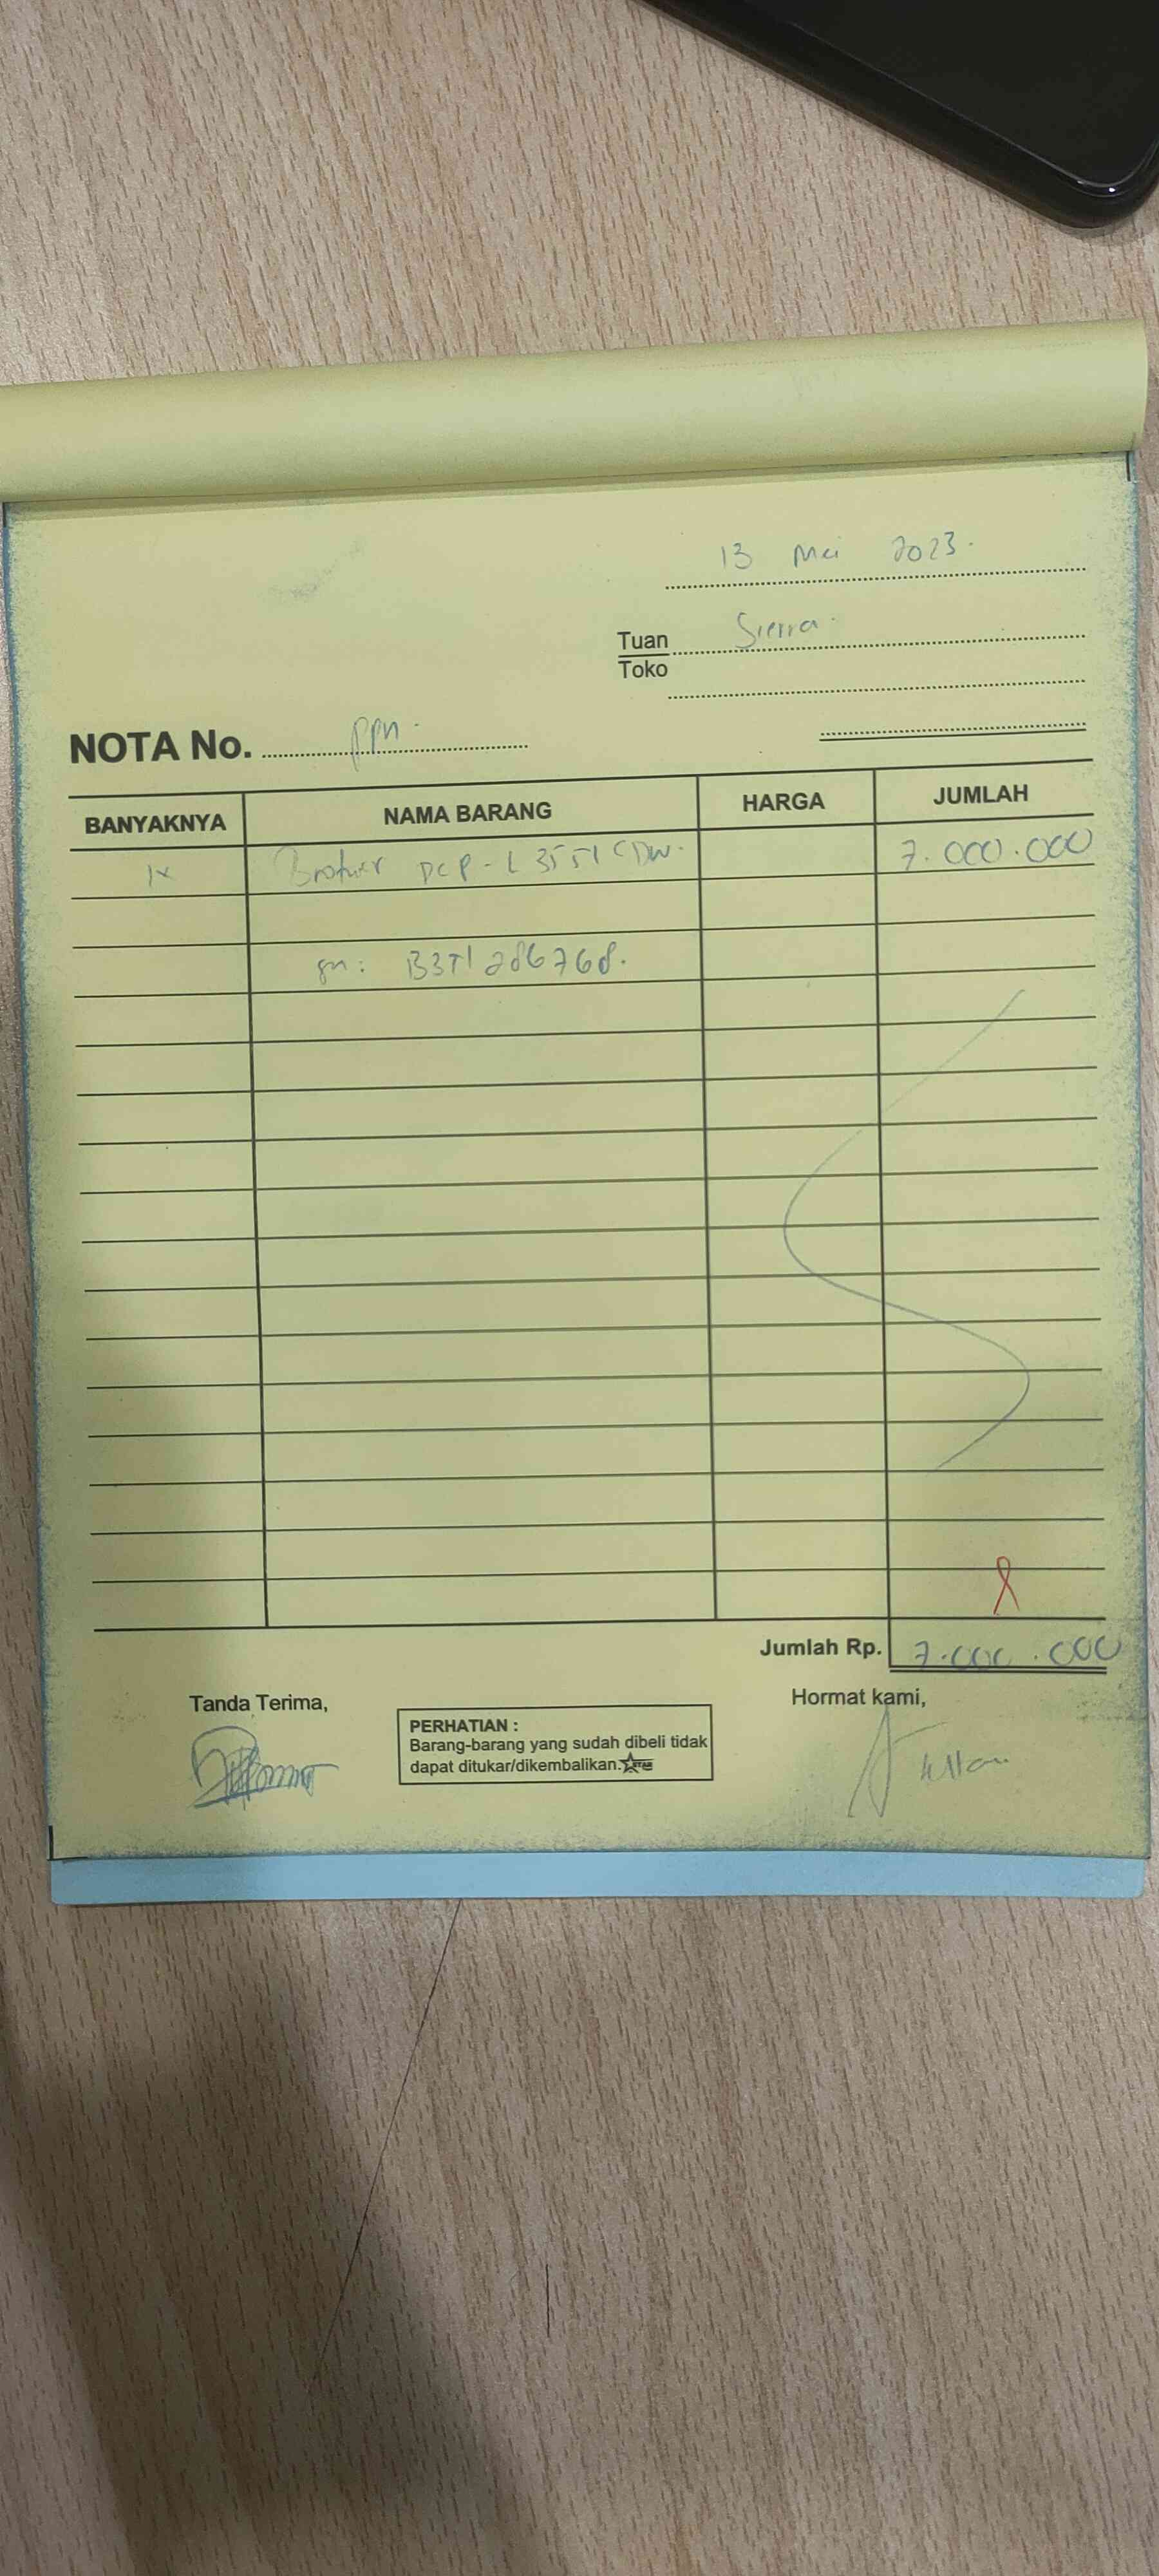 13 Mei 2023.
Tuan Sierra.
Toko
NOTA No. ppn.
BANYAKNYA NAMA BARANG HARGA JUMLAH
1x Brother DCP-L3551CDW. 7.000.000
sn:
Jumlah Rp. 7.000.000
Tanda Terima,
Hormat kami,
PERHATIAN :
Barang-barang yang sudah dibeli tidak
dapat ditukar/dikembalikan.